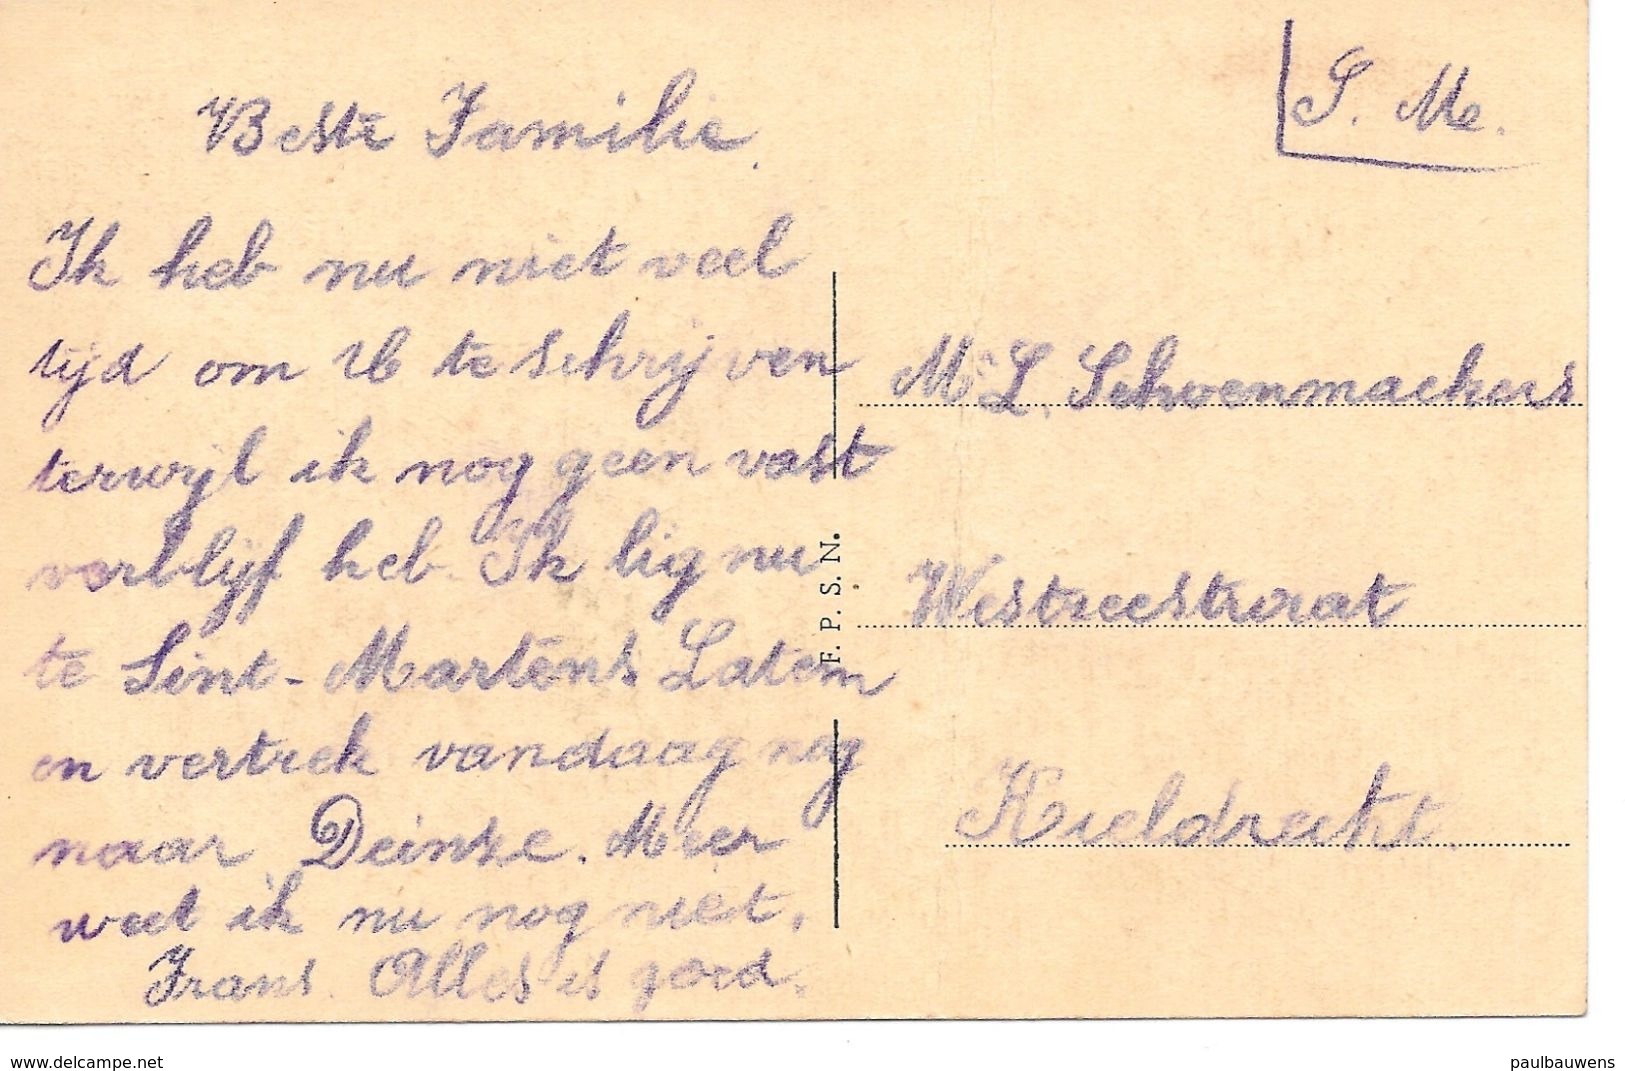 Beste Familie.
Ik heb nu niet veel
tijd om U te schrijven
terwijl ik nog geen vast
verblijf heb. Ik lig nu
te Sint-Martens Latem
en vertrek vandaag nog
naar Deinze. Meer
weet ik nu nog niet.
Frans. Alles is goed.
F. P. S. N.
S. M.
M L. Schoenmackers
Westreestraat
Kieldrecht.
www.delcampe.net
paulbauwens